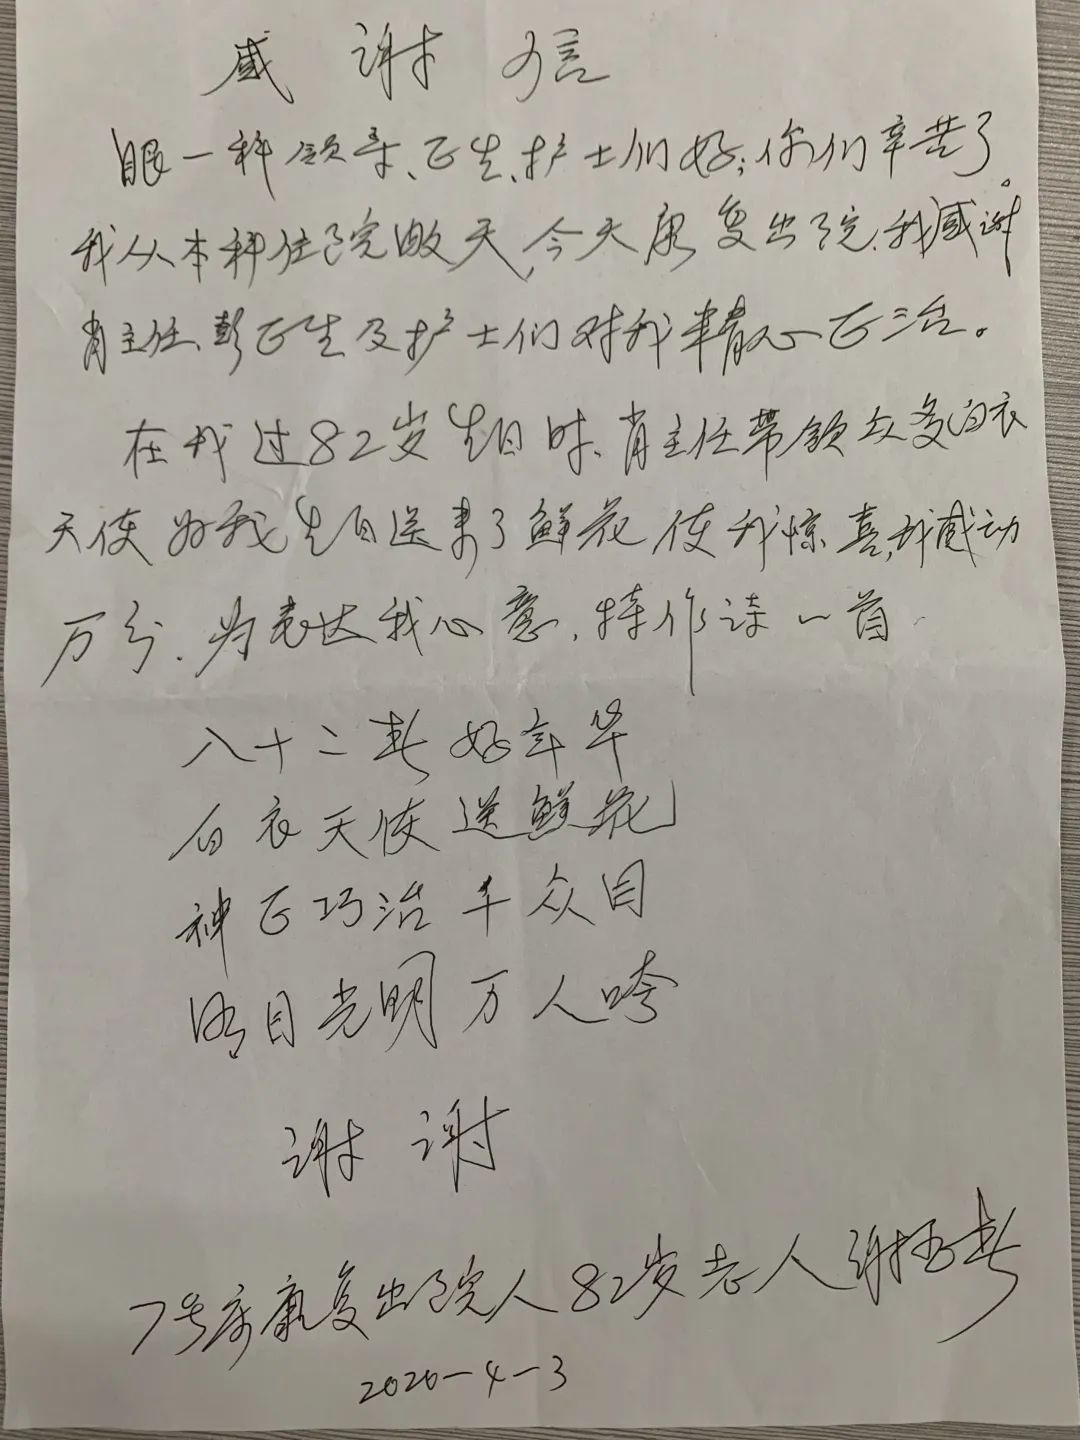 感谢信
眼一科领导、医生、护士们好；你们辛苦了。
我从本科住院数天，今天康复出院，我感谢
肖主任、彭医生及护士们对我精心医治。
在我过82岁生日时、肖主任带领众多白衣
天使为我生日送来了鲜花使我惊喜，我感动
万分、为表达我心意，特作诗一首
八十二春好年华
白衣天使送鲜花
神医巧治千众目
明目光明万人夸
谢谢
7号床康复出院人82岁老人谢玉春
2020-4-3